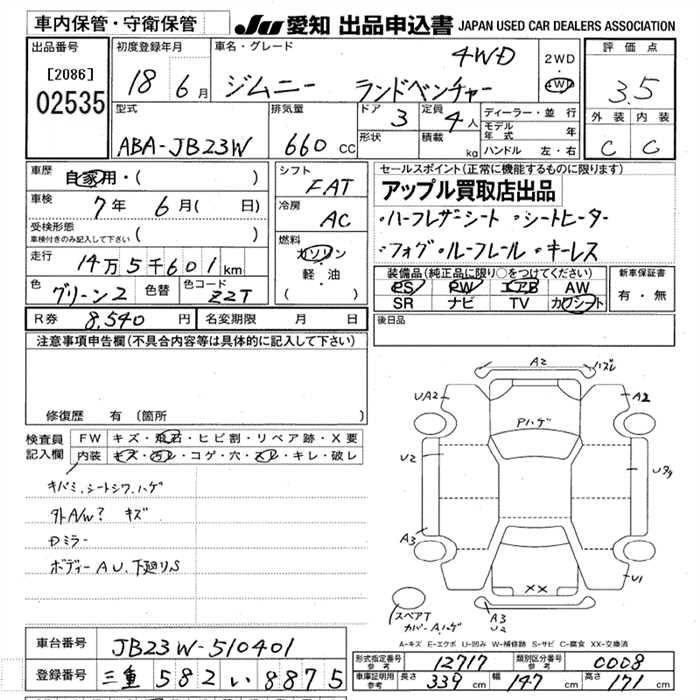 車内保管・守衛保管
JU 愛知 出品申込書 JAPAN USED CAR DEALERS ASSOCIATION
出品番号
[2086]
02535
初度登録年月
18 6月
車名・グレード
ジムニー ランドベンチャー 4WD
2WD
・
4WD
評価点
3.5
外装 内装
C C
型式
ABA-JB23W
排気量
660 cc
ドア 3
形状
定員 4人
積載 kg
ディーラー・並行
モデル年式 年
ハンドル 左・右
車歴 自家用・( )
車検 7年 6月( 日)
受検形態
車検付きのみ記入して下さい ( )
走行 14万5千601km
色 グリーン2 色替 色コード ZZT
シフト
FAT
冷房
AC
燃料
ガソリン
軽・油
( )
セールスポイント(正常に機能するものに限ります)
アップル買取店出品
・ハーフレザーシート ・シートヒーター
・フォグ・ルーフレール・キーレス
装備品(純正品に限り○をつけてください)
PS PW エアB AW
SR ナビ TV カワシート
新車保証書
有・無
R券 8,540円 名変期限 月 日
後日品
注意事項申告欄(不具合内容等は具体的に記入して下さい)
修復歴 有(箇所 )
検査員記入欄
FW キズ・飛石・ヒビ割・リペア跡・X要
内装 キズ・汚レ・コゲ・穴・スレ・キレ・破レ
キバミ、シートシワ、ハゲ
外A/W? キズ
Dミラー
ボディーAU、下廻りS
A2 ハズレ
UA2 A2
Pハゲ
U2
A3 U1
XX
スペアT
カバーA、ハゲ
A3
U2
A-キズ E-エクボ U-凹み W-補修跡 S-サビ C-腐食 XX-交換済
車台番号 JB23W-510401
登録番号 三重 582 い 8875
形式指定番号 参考 12717 類別区分番号 参考 0008
車庫証明用 参考 長さ 339cm 幅 147cm 高さ 171cm